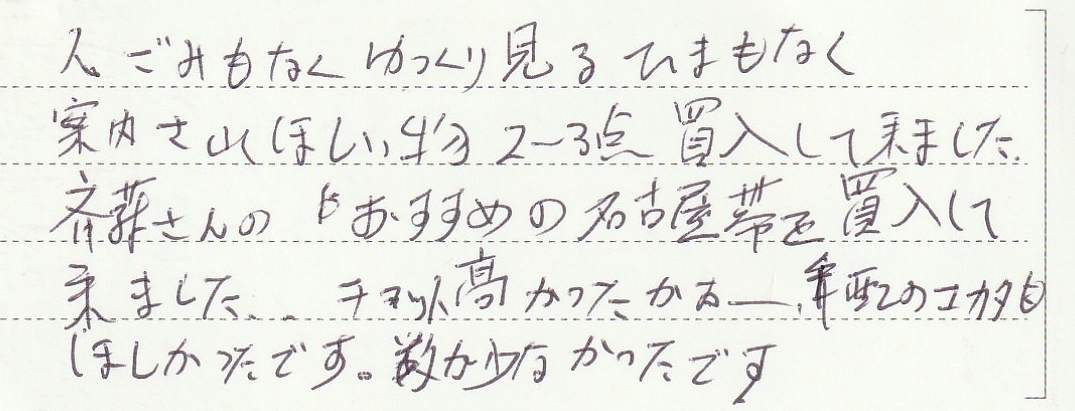 人ごみもなくゆっくり見るひまもなく
案内されほしい物2〜3点買入して来ました.
斉藤さんのおすすめの名古屋帯を買入して
来ました... チョット高かったかなー、年配のユカタも
ほしかったです。数が少なかったです